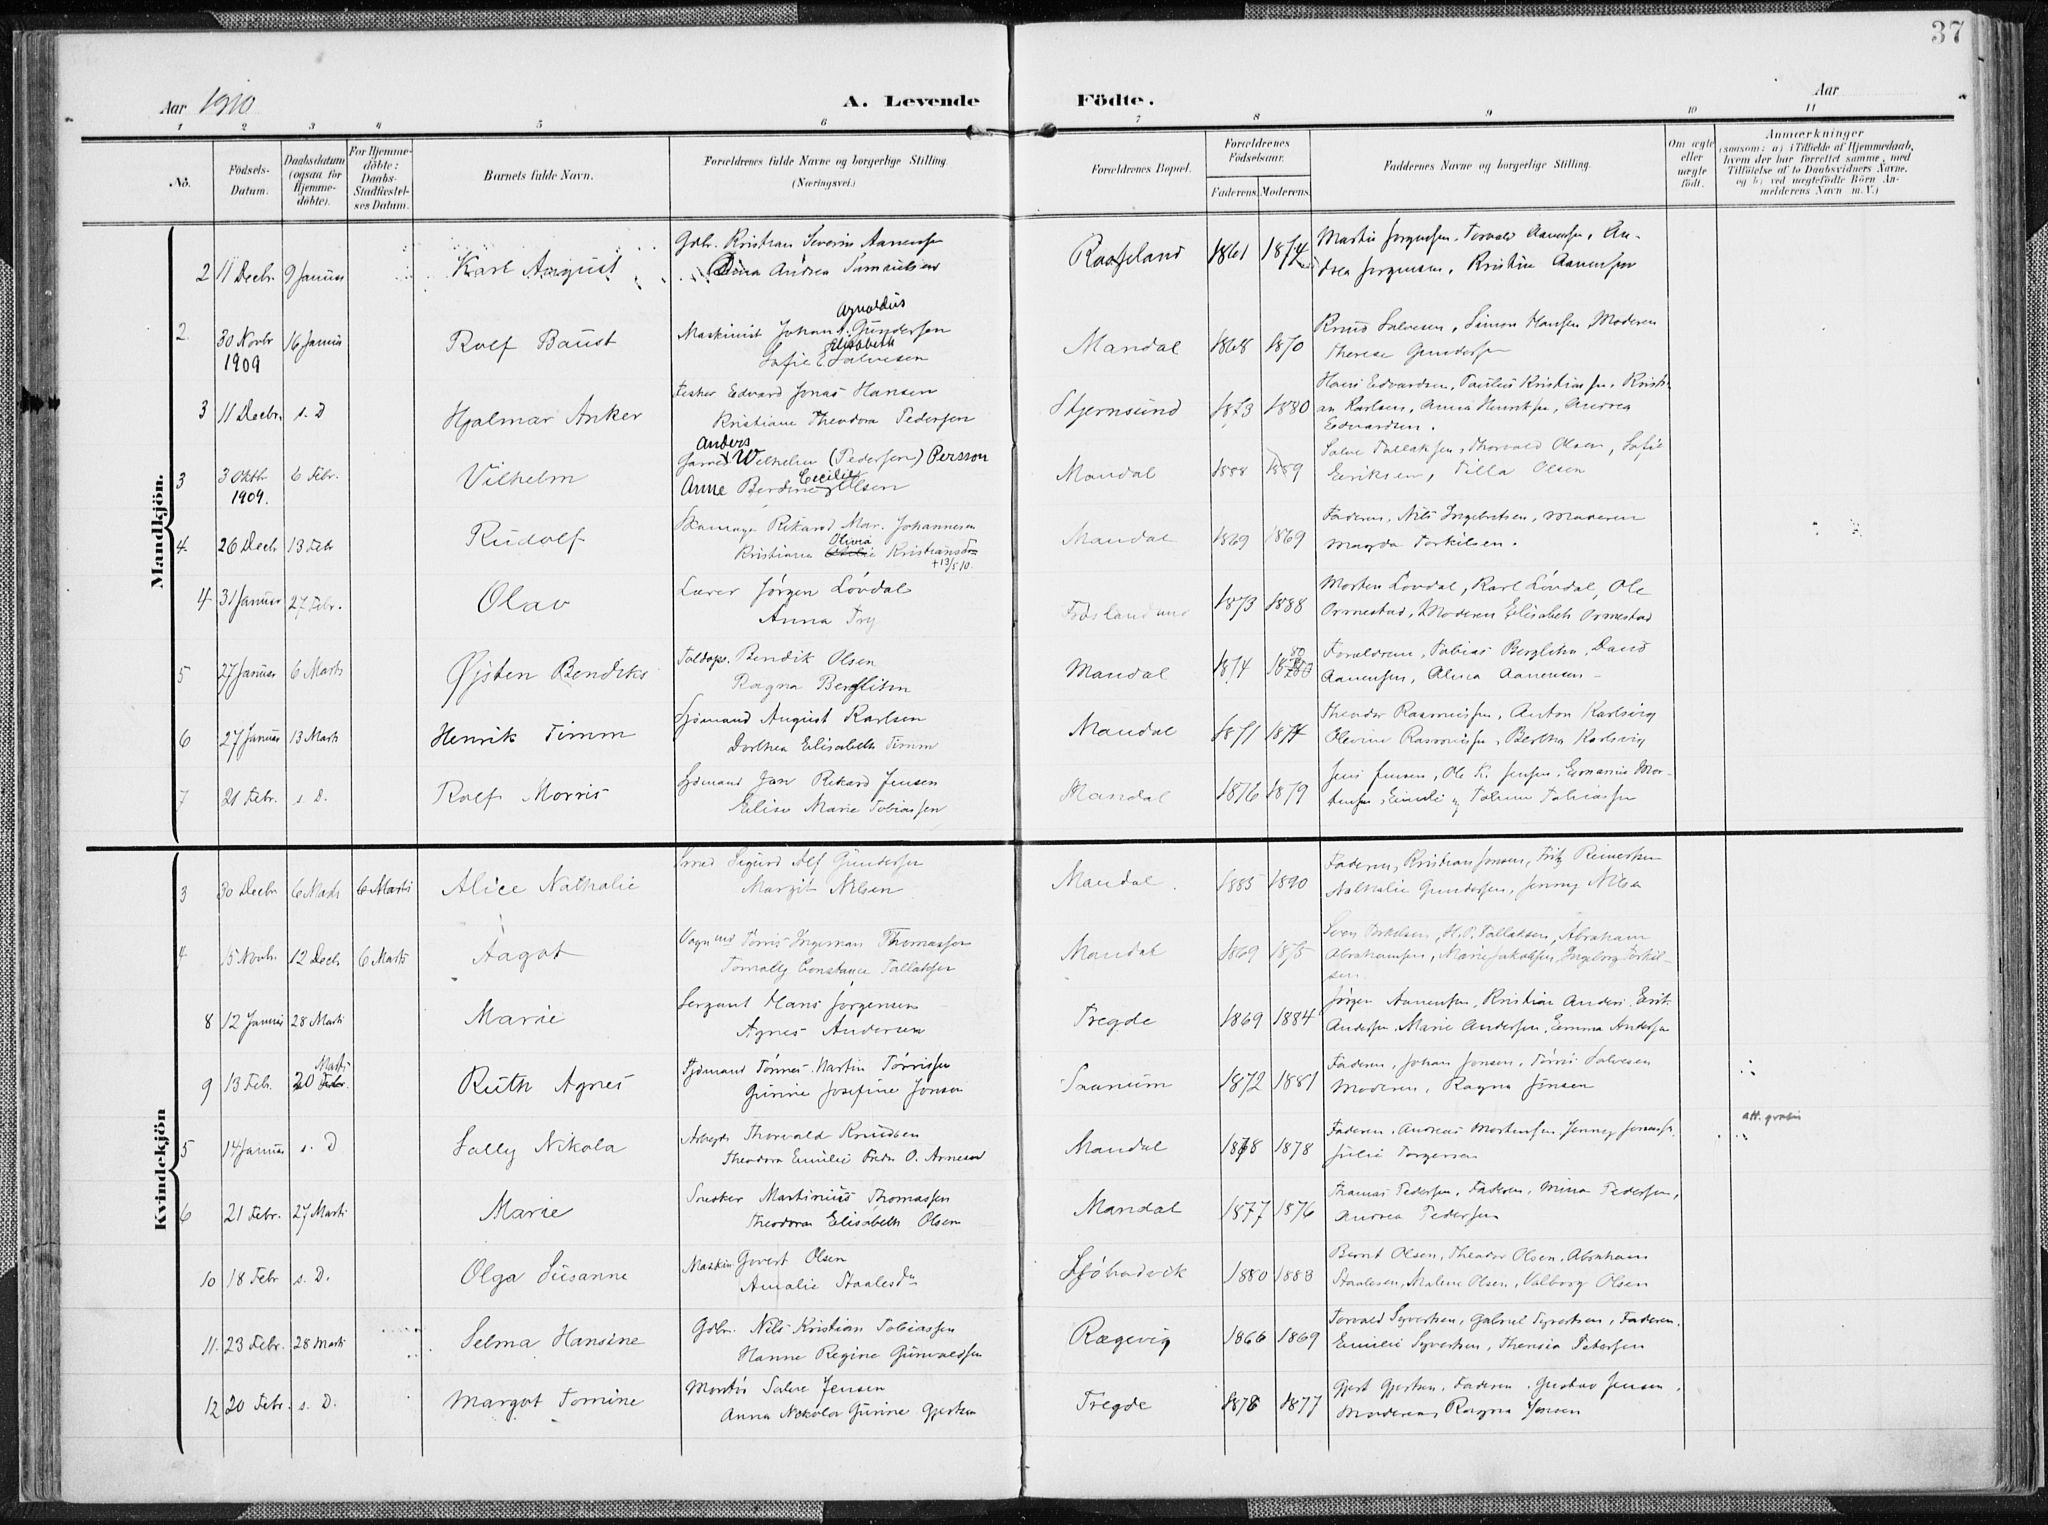 37
Aar 1910
A. Levende Födte.
Aar
1 2 3 4 5 6 7 8 9 10 11
No.
Födsels-Datum.
Daabsdatum (ogsaa for Hjemme-döbte).
For Hjemme-döbte: Daabs-Stadfæstel-ses Datum.
Barnets fulde Navn.
Forældrenes fulde Navne og borgerlige Stilling. (Næringsvei.)
Forældrenes Bopæl.
Forældrenes Födselsaar.
Faderens. Moderens.
Faddernes Navne og borgerlige Stilling.
Om ægte eller uægte födt.
Anmærkninger
(saasom: a) i Tilfælde af Hjemmedaab, hvem der har forrettet samme, med Tilföielse af to Daabsvidners Navne. og b) ved uægtefödte Börn An-melderens Navn m. V.)
Mandkjön.
2 11 Decbr. 9 Januar Karl August Gdbr. Kristian Severin Aanensen
Andrea Samuelsen 1861 1874
Martin Jørgensen, Torvald Aanensen, An-
drea Jørgensen, Kristine Aanensen
2 30 Novbr 1909 16 Januar Rolf Baust Maskinist Johan Arnoldus Gundersen
Sofie Elisabeth Salvesen Mandal 1868 1870
Knud Salvesen, Simon Hansen Moderen
Therese Gundersen
3 11 Decbr. s. D Hjalmar Anker Fisker Edvard Jonas Hansen
Kristiane Theodora Pedersen Skjernsund 1873 1880
Hans Edvardsen, Paulus Kristiansen, Kristi-
an Karlsen, Anna Henriksen, Andrea
Edvardsen.
3 3 Oktbr 1909. 6 Febr. Vilhelm Anders Wilhelm (Pedersen) Persson
Anne Berdine Cecilie Olsen Mandal 1888 1889
Salve Tallaksen, Thorvald Olsen, Sofie
Eriksen, Tilla Olsen
4 26 Decbr 13 Febr Rudolf Skomager Rikard Mar. Johannesen
Kristiane Olivia Kristiansdr
+13/5 10. Mandal 1869 1869
Faderen, Nils Ingebretsen, Moderen
Magda Torkilsen.
4 31 Januar 27 Febr. Olav Lærer Jørgen Løvdal
Anna Try 1873 1888
Morten Løvdal, Karl Løvdal, Ole
Ormestad, Moderen Elisabeth Ormestad
5 27 Januar 6 Marts Øjsten Bendiks Toldops. Bendik Olsen
Ragna Berglihn Mandal 1874 1880
Forældrene, Tobias Berglihn, David
Aanensen, Alma Aanensen
6 27 Januar 13 Marts Henrik Timm Sjømand August Karlsen
Dorthea Elisabeth Timm Mandal 1871 1877
Theodor Rasmussen, Anton Karlsvig
Olevine Rasmussen, Bertha Karlsvig
7 21 Febr. s. D. Rolf Morris Sjømand Jan Rikard Jensen
Elise Marie Tobiassen Mandal 1876 1879
Jens Jensen, Ole K. Jensen, Emanuel Mor-
tensen, Emilie og Tobine Tobiassen
Kvindekjön
3 30 Decbr 6 Marts 6 Marts Alice Nathalie Smed Sigurd Alf Gundersen
Margit Nilsen Mandal. 1885 1890
Faderen, Kristian Jonsen, Fritz Reinertsen
Nathalie Gundersen, Jenny Nilsen
4 15 Novbr. 12 Decbr 6 Marts Aagot Vognmd Tørris Ingeman Thomassen
Tomally Constance Tallaksen Mandal 1869 1875
Sven Torkelsen, H. P. Tallaksen, Abraham
Abrahamsen, Marie Jakobsen, Ingeborg Torkil-
sen.
8 12 Januar 28 Marts Marie Sergant Hans Jørgensen
Agnes Andersen Tregde 1869 1884
Jørgen Aanensen, Kristian Anders. Erik
Andersen, Marie Andersen, Emma Andersen
9 13 Febr. 20 Marts Ruth Agnes Sjømand Tønnes Martin Tørrissen
Gurine Josefine Jonsen Sanum 1872 1881
Faderen, Johan Jonsen, Tørris Salvesen
Moderen, Ragna Jonsen
5 14 Januar s. D Sally Nikola Arbeyds Thorvald Knudsen
Theodora Emilie Fredr. O. Arnesen Mandal 1878 1878
Faderen, Andreas Mortensen, Jenny Jonassen,
Julie Torgersen
att. gratis
6 21 Febr. 27 Marts Marie Snekker Martinius Thomassen
Theodora Elisabeth Olsen Mandal 1877 1876
Thomas Pedersen, Faderen, Mina Pedersen,
Andrea Pedersen
10 18 Febr s. D. Olga Susanne Maskin Govert Olsen
Amalie Staalesdr 1880 1883
Bernt Olsen, Theodor Olsen, Abraham
Staalesen, Malene Olsen, Valborg Olsen
11. 23 Febr. 28 Marts Selma Hansine Gdbr. Nils Kristian Tobiassen
Hanne Regine Gunvaldsen Rægevig 1866 1869
Torvald Syvertsen, Gabriel Syvertsen, Faderen.
Emilie Syvertsen, Theresia Petersen
12 20 Febr. s. D. Margot Tomine Montør Salve Jensen
Anna Nikola Gurine Gjertsen Tregde 1876 1877
Gjert Gjertsen, Faderen, Gustav Jensen,
Moderen, Ragna Jensen